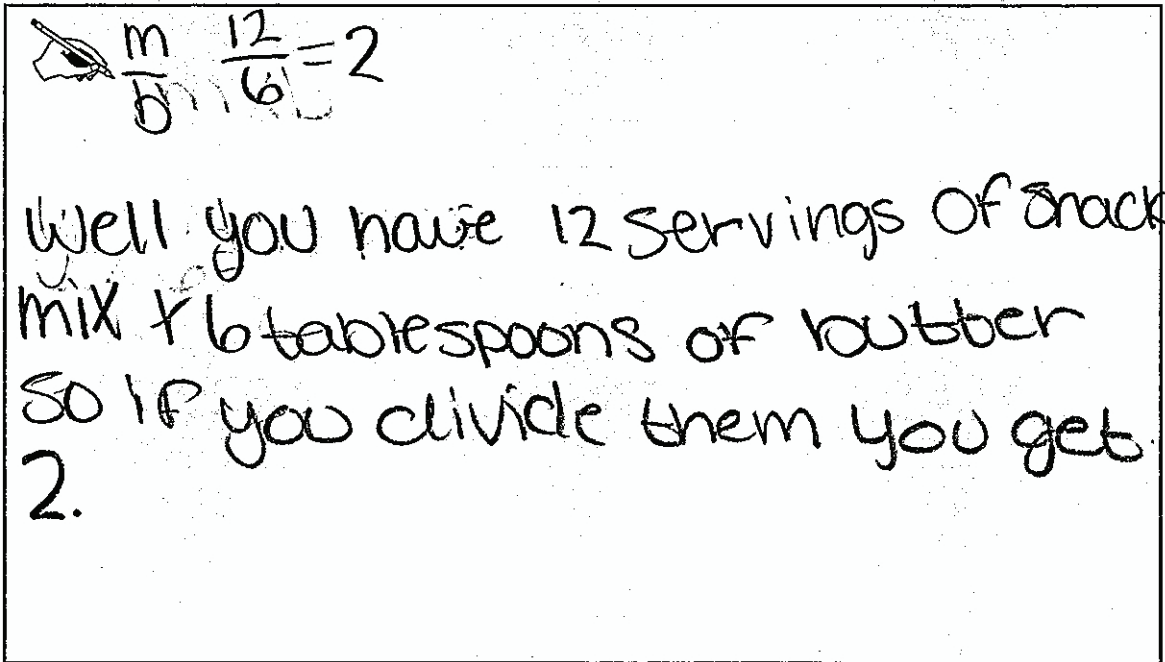 m/b 12/6 = 2
Well you have 12 servings of snack
mix + 6 tablespoons of butter
so if you divide them you get
2.